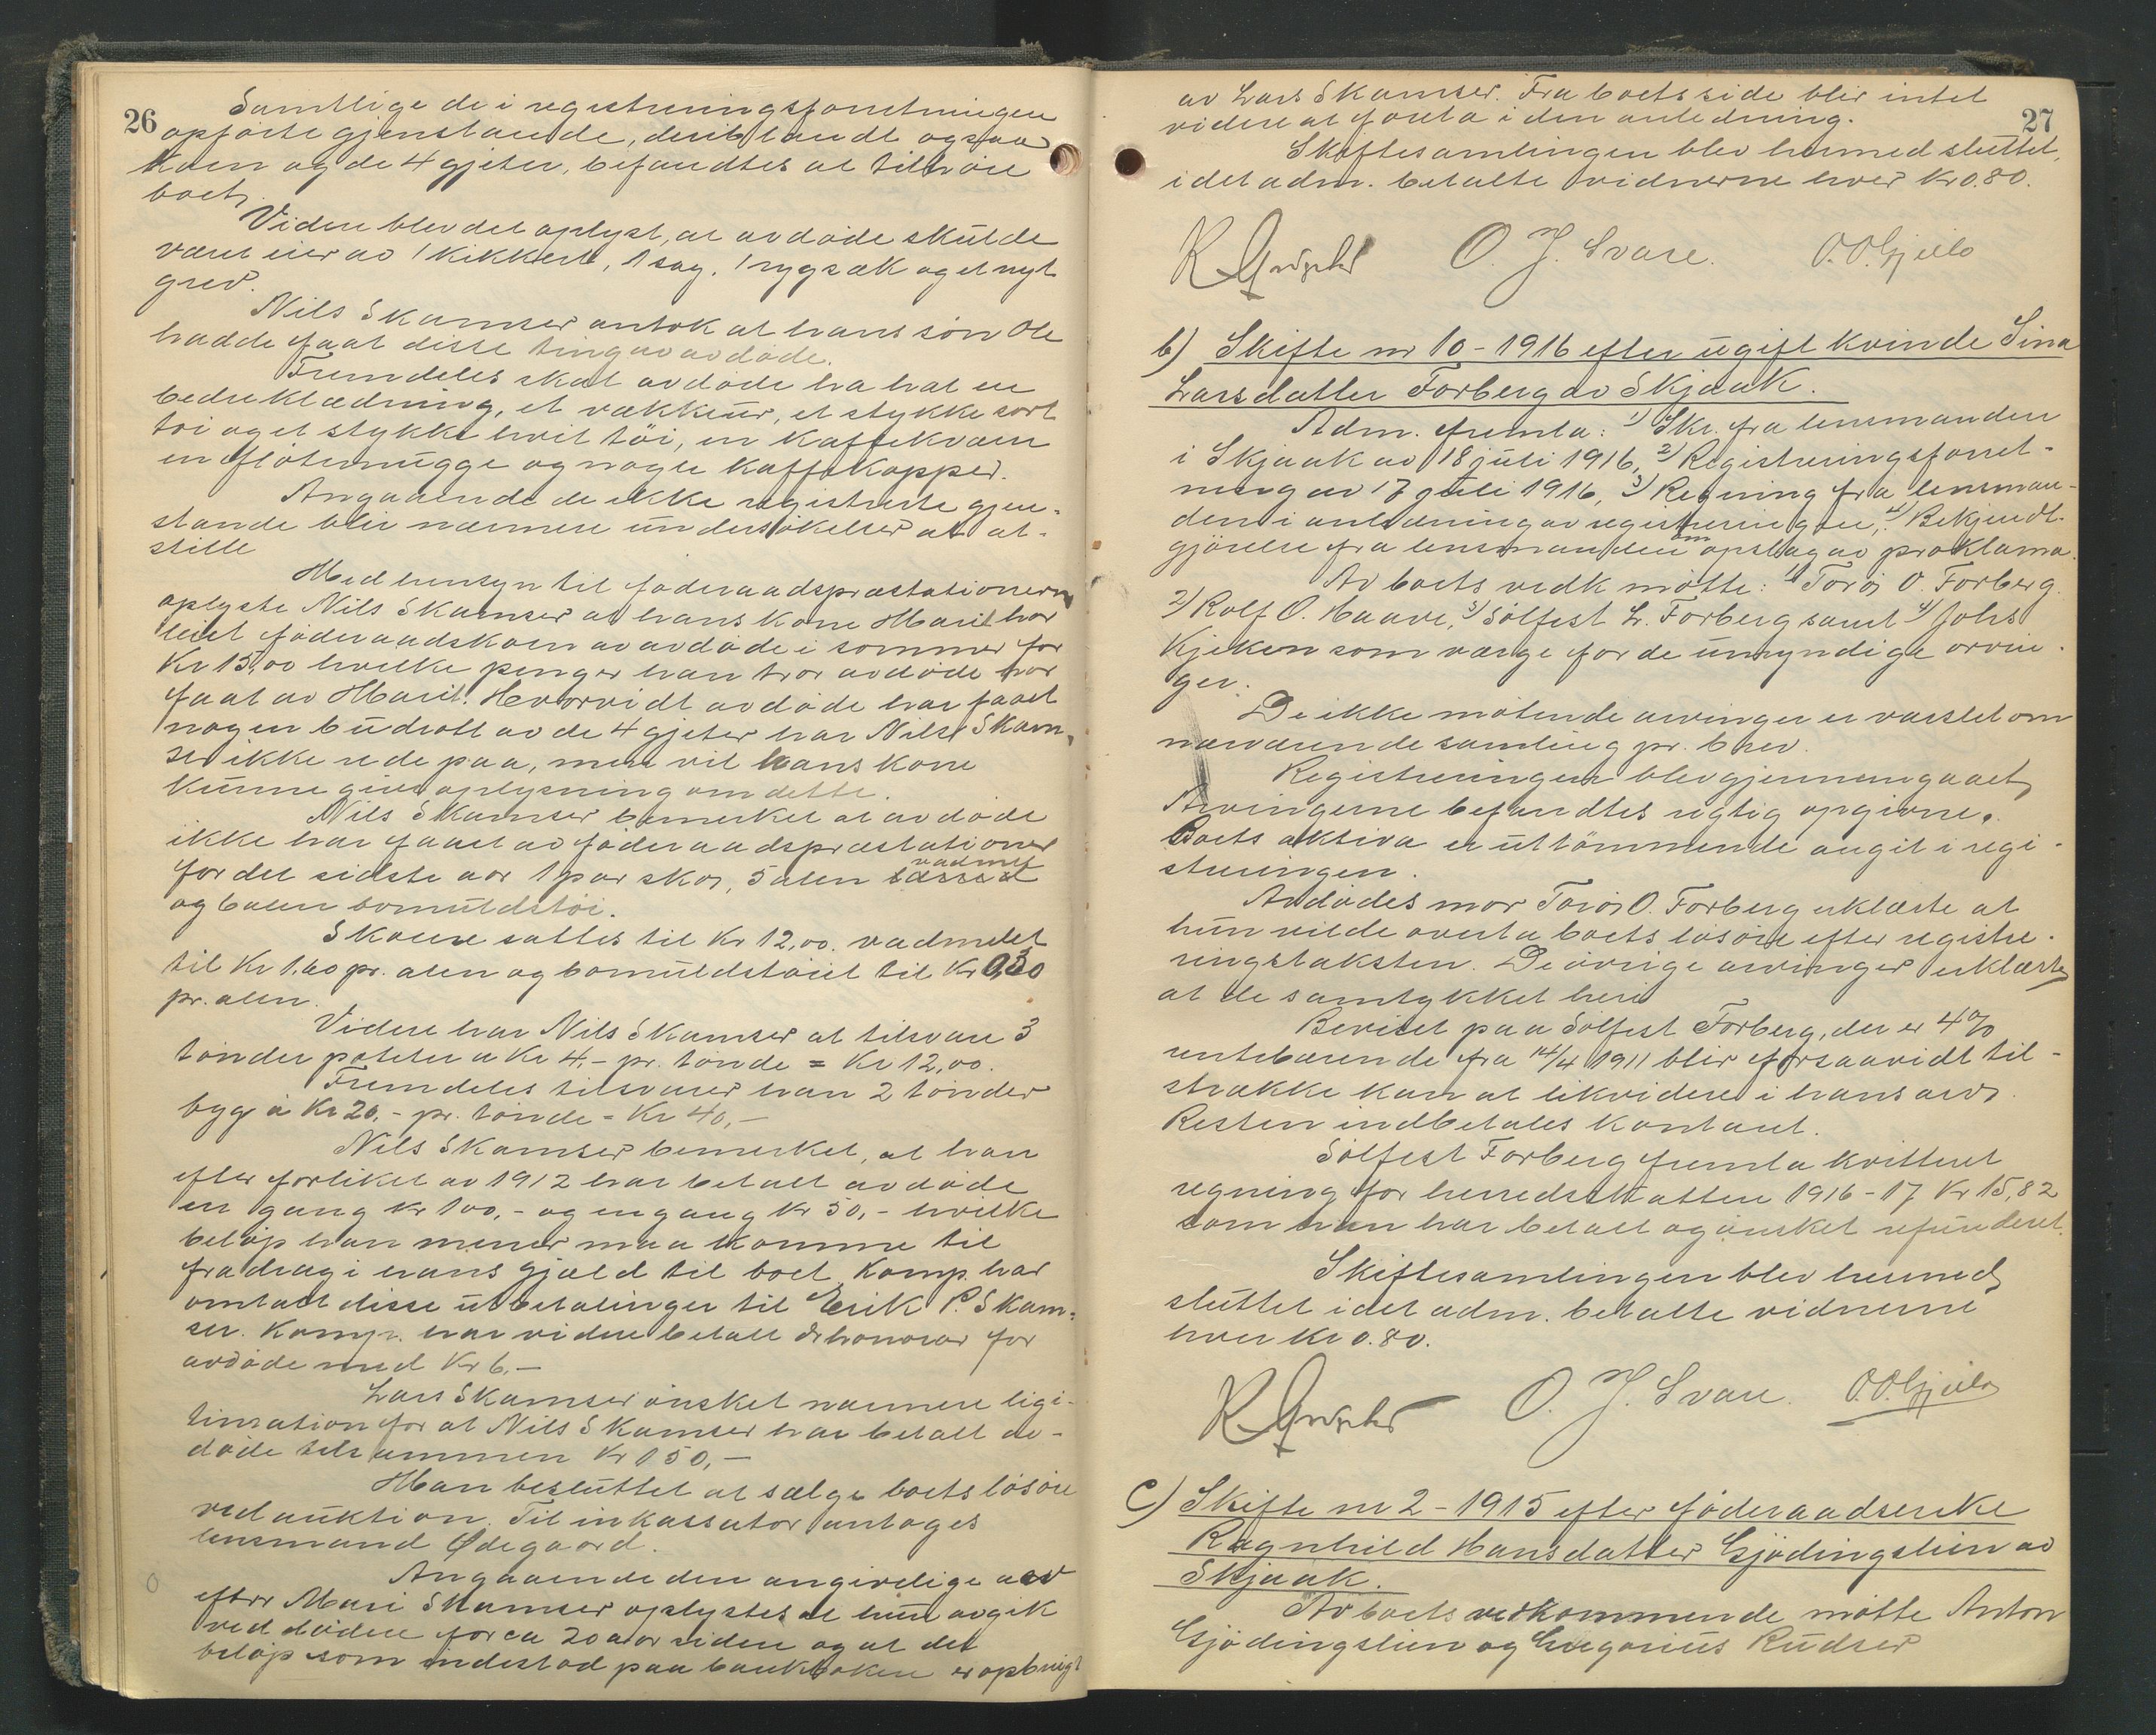 26
Samtlige de i registreringsforretningen
opförte gjenstande, deriblandt ogsaa
koen og de 4 gjeter, befandtes at tilhöre
boet.
Videre blev det oplyst, at avdöde skulde
været eier av 1 kikkert, 1 sag, 1 rygsæk og et nyt
grev.
Nils Skamser antok at hans sön Ole
hadde faat disse ting av avdöde.
Fremdeles skal avdöde ha hat en
bedre klædning, et vækkeur, et stykke sort
töi og et stykke hvit töi, en kaffekvern
en flötemugge og nogle kaffekopper.
Angaaende de ikke registrerte gjen-
stande blir nærmere undersökelser at at-
stille
Med hensyn til föderaadspræstationern
oplyste Nils Skamser at hans kone Marit har
leiet föderaadskoen av avdöde i sommer for
Kr 15,00 hvilke penger han tror avdöde har
faat av Marit. Hvorvidt avdöde har faaet
nogen budrott av de 4 gjeter har Nils Skam-
ser ikke rede paa, men vil hans kone
kunne give oplysning om dette.
Nils Skamser bemerket at avdöde
ikke har faaet av föderaadspræstationer
for det sidste aar 1 par sko, 5 alen vadmel
og 6 alen bomuldstöi.
Skoene sattes til Kr 12,00. vadmelet
til Kr 1,60 pr. alen og bomuldstöiet til Kr 0,30
pr. alen.
Videre har Nils Skamser at tilsvare 3
tönder poteter a Kr 4,- pr. tönde = Kr 12,00.
Fremdeles tilsvarer han 2 tönder
byg à Kr 20,- pr. tönde = Kr 40,-
Nils Skamser bemerket, at han
efter forliket av 1912 har betalt avdöde
en gang Kr 100,- og en gang Kr 50,- hvilke
belöp han mener maa komme til
fradrag i hans gjæld til boet. Komp. har
omtalt disse utbetalinger til Erik P. Skam-
ser. Komp. har videre betalt drhonorar for
avdöde med Kr 6,-
Lars Skamser önsket nærmere legi-
timation for at Nils Skamser har betalt av-
döde tilsammen Kr 150,-
Man besluttet at sælge boets lösöre
ved auktion. Til inkassator antoges
lensmand Ødegaard.
Angaaende den angivelige arv
efter Mari Skamser oplystes at hun avgik
ved döden for ca 20 aar siden og at det
belöp som indestod paa bankboken er opbrugt
27
av Lars Skamser. Fra boets side blir intet
videre at foreta i den anledning.
Skiftesamlingen blev hermed sluttet,
idet adm. betalte vidnerne hver Kr 0.80.
O. J. Svare. O. O. Gjeilo
b) Skifte nr 10 - 1916 efter ugift kvinde Sina
Larsdatter Forberg av Skjaak.
Adm. fremla: 1) Skr. fra lensmanden
i Skjaak av 18 juli 1916, 2) Registreringsforret-
ning av 17 juli 1916, 3) Regning fra lensman-
den i anledning av registreringen, 4) Bekjendt-
gjörelse fra lensmanden om opslag av proklama.
Av boets vedk mötte: 1) Toröi O. Forberg.
2) Rolf O. Haave, 3) Sölfest L. Forberg samt 4) Johs
Kjeken som værge for de umyndige arvin-
ger.
De ikke mötende arvinger er varslet om
nærværende samling pr. brev.
Registreringen blev gjennemgaaet,
Arvingerne befandtes rigtig opgivne.
Boets aktiva er uttömmende angit i regi-
streringen.
Avdödes mor Toröi O. Forberg erklærte at
hun vilde overta boets lösöre efter registre-
ringstaksten. De övrige arvinger erklærte
at de samtykket heri
Beviset paa Sölfest Forberg, der er 4%
rentebærende fra 14/4 1911 blir forsaavidt til-
strække kan at likvidere i hans arv.
Resten indbetales kontant.
Sölfest Forberg fremla kvitteret
regning for herredsskatten 1916-17 Kr 15,82
som han har betalt og önsket refunderet.
Skiftesamlingen blev hermed
sluttet idet adm. betalte vidnerne
hver Kr 0.80.
O. J. Svare. O. O. Gjeilo
C) Skifte nr 2 - 1915 efter föderaadsenke
Ragnhild Hansdatter Gjödingslien av
Skjaak.
Av boets vedkommende mötte Anton
Gjödingslien og Gregorius Rudser